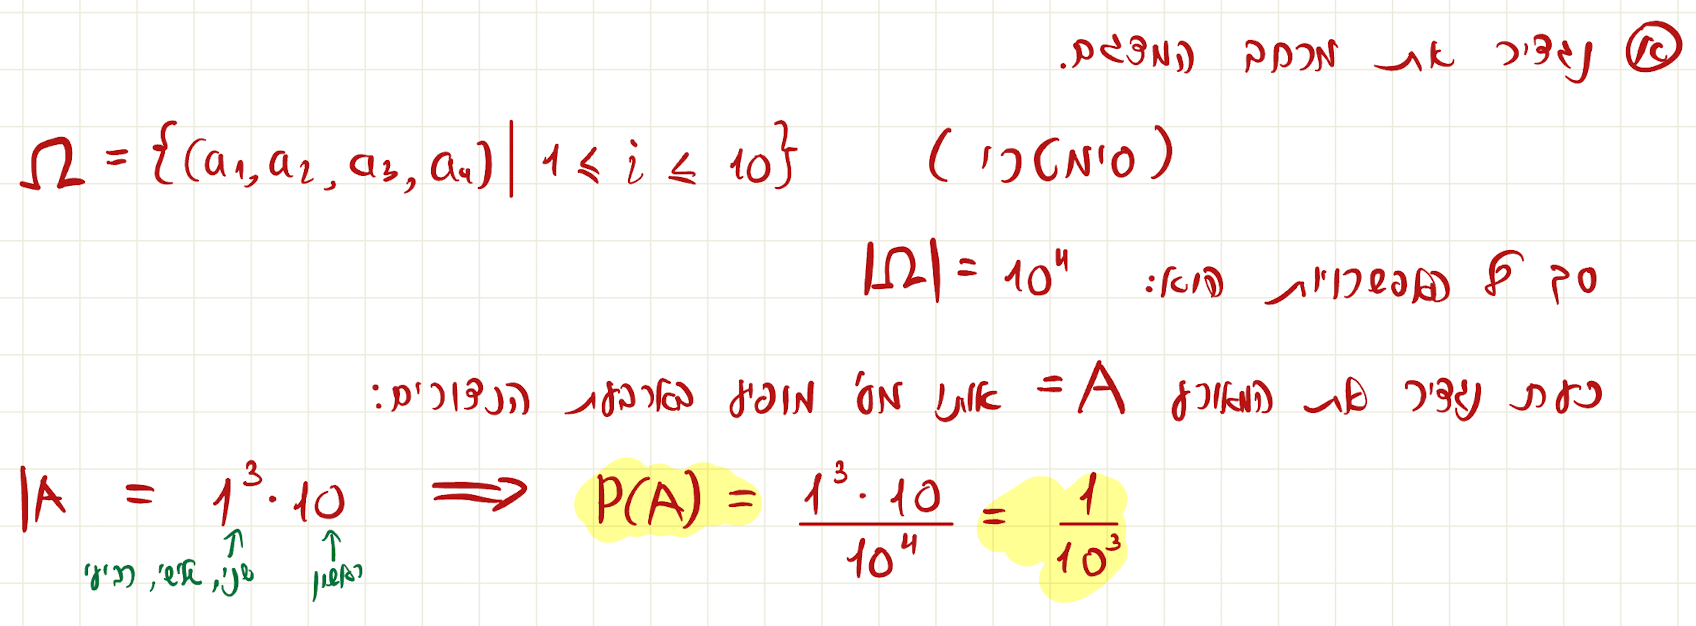 א נגדיר את מרחב המדגם.
Ω = {(a₁, a₂, a₃, a₄) | 1 ≤ i ≤ 10} (סימטרי)
סך כל האפשרויות הוא: |Ω| = 10⁴
כעת נגדיר את המאורע A = אותו מס' מופיע בארבעת הכדורים:
|A = 1³ · 10 ⟹ P(A) = 1³ · 10 / 10⁴ = 1 / 10³
ראשון
שני, שלישי, רביעי